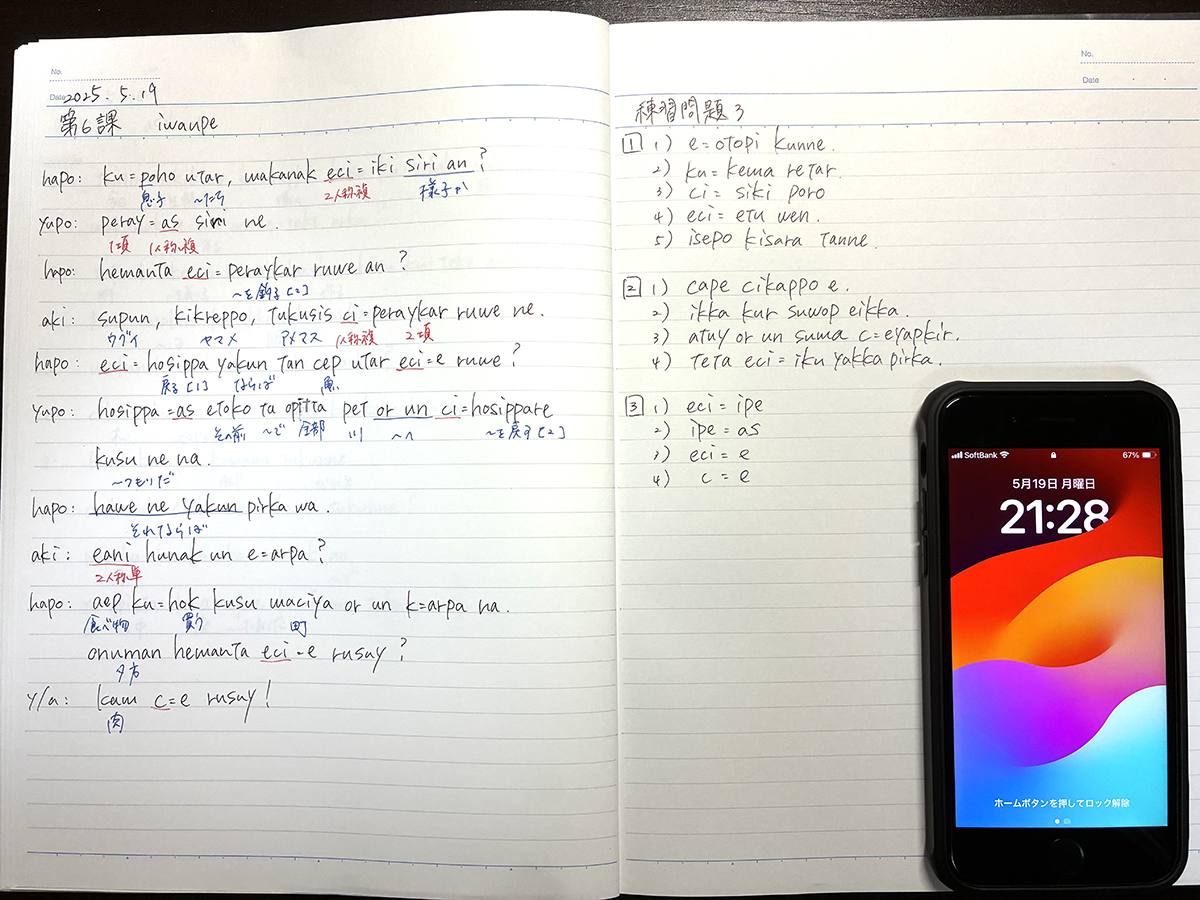 No.
Date 2025.5.19
第6課 iwanpe
hapo: ku=poho utar, makanak eci=iki siri an?
息子 〜たち 2人称複 様子か
yupo: peray=as siri ne.
1項 1人称複
hapo: hemanta eci=peraykar ruwe an?
〜を釣る[2]
aki: supun, kikreppo, tukusis ci=peraykar ruwe ne.
ウグイ ヤマメ アメマス 1人称複 2項
hapo: eci=hosippa yakun tan cep utar eci=e ruwe?
戻る[1] ならば 魚
yupo: hosippa=as etoko ta opitta pet or un ci=hosippare
その前 〜で 全部 川 〜へ 〜を戻す[2]
kusu ne na.
〜つもりだ
hapo: hawe ne yakun pirka wa.
それならば
aki: eani hunak un e=arpa?
2人称単
hapo: aep ku=hok kusu maciya or un k=arpa na.
食べ物 買う 町
onuman hemanta eci=e rusuy?
夕方
y/a: kam c=e rusuy!
肉
No.
Date
練習問題3
1 1) e=otopi kunne.
2) ku=kema retar.
3) ci=siki poro
4) eci=etu wen.
5) isepo kisara tanne.
2 1) cape cikappo e.
2) ikka kur suwop eikka.
3) atuy or un suma c=eyapkir.
4) teta eci=iku yakka pirka.
3 1) eci=ipe
2) ipe=as
3) eci=e
4) c=e
SoftBank 67%
5月19日 月曜日
21:28
ホームボタンを押してロック解除